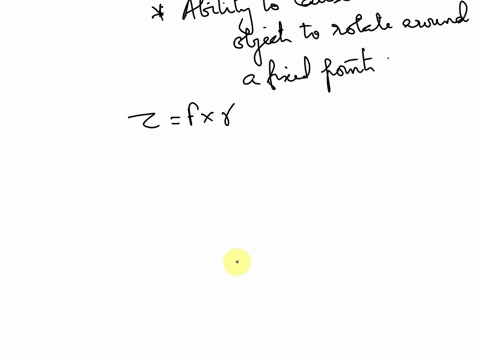 * Ability to
object to rotate around
a fixed point.
τ = f × r